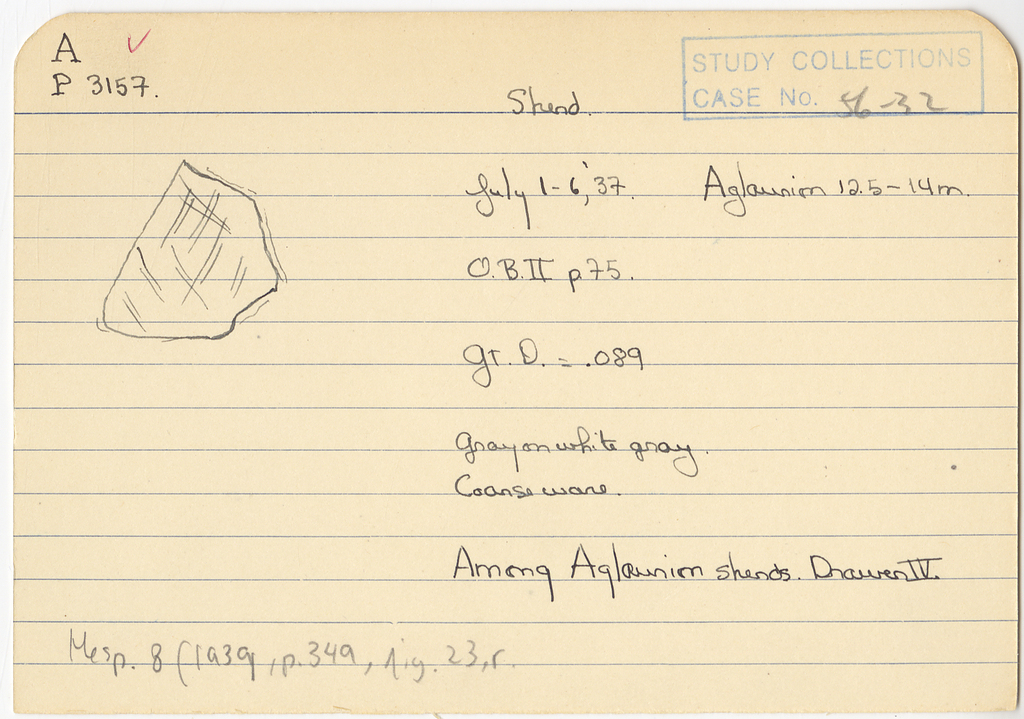 A
P 3157.
STUDY COLLECTIONS
CASE No. 56-32
Sherd.
July 1-6, '37. Aglaurion 12.5-14m.
O.B.II p.75.
Gr. D. = .089
Gray on white gray.
Coarse ware.
Among Aglaurion sherds. Drawer IV.
Hesp. 8 (1939, p.349, fig. 23, r.